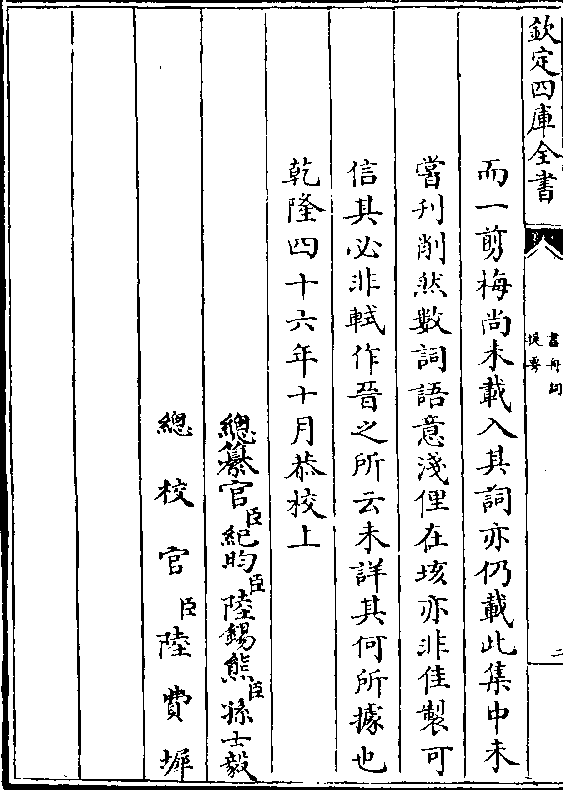 欽定四庫全書
書舟詞
提要
二
而一剪梅尚未載入其詞亦仍載此集中未
嘗刋削然數詞語意淺俚在垓亦非佳製可
信其必非軾作晉之所云未詳其何所據也
乾隆四十六年十月恭校上
總纂官臣紀昀臣陸錫熊臣孫士毅
總校官臣陸費墀